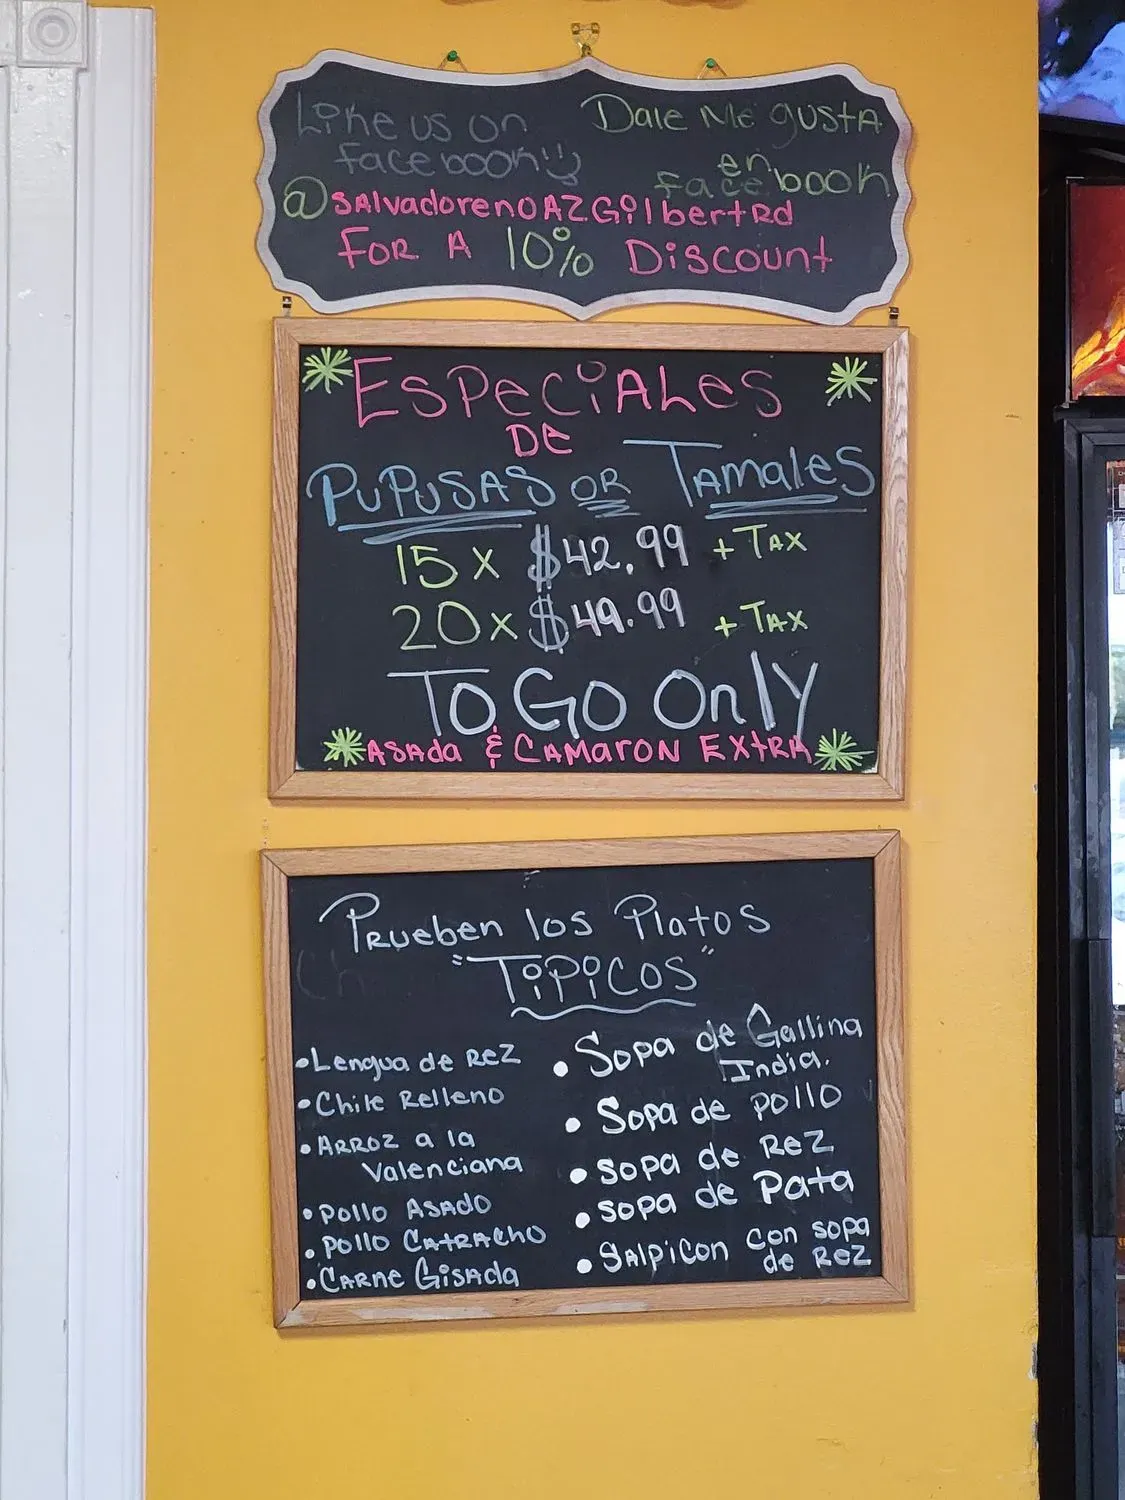 Like us on
facebook
Dale Me gusta
en
facebook
@SalvadorenoAZGilbertRd
For A 10% Discount
Especiales
De
Pupusas or Tamales
15 x $42.99 + Tax
20 x $49.99 + Tax
To Go Only
Asada & Camaron Extra
Prueben los Platos
"Tipicos"
• Lengua de Rez
• Chile Relleno
• Arroz a la
Valenciana
• Pollo Asado
• Pollo Catracho
• Carne Gisada
• Sopa de Gallina
India.
• Sopa de pollo
• Sopa de Rez
• Sopa de Pata
• Salpicon con sopa
de Rez